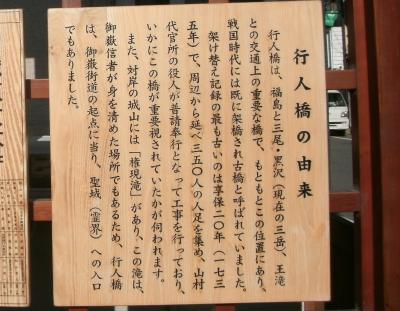 行人橋の由来
行人橋は、福島と三尾・黒沢（現在の三岳）、王滝
との交通上の重要な橋で、もともとこの位置にあり、
戦国時代には既に架橋され古橋と呼ばれていました。
架け替え記録の最も古いのは享保二〇年（一七三
五年）で、周辺から延べ三五〇人の人足を集め、山村
代官所の役人が普請奉行となって工事を行っており、
いかにこの橋が重要視されていたかが伺われます。
また、対岸の城山には「権現滝」があり、この滝は、
御嶽信者が身を清めた場所でもあるため、行人橋
は、御嶽街道の起点に当り、聖域（霊界）への入口
でもありました。